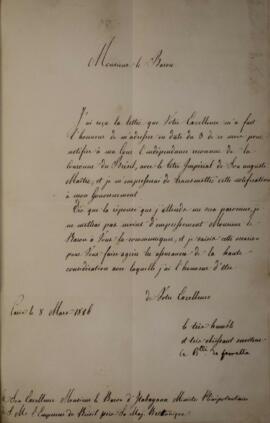 Monsieur le Baron
J'ai reçu la lettre que Votre Excellence m'a fait
l'honneur de m'adresser en date du 3 de ce mois pour
notifier à ma Cour l'indépendance reconnue de la
Couronne du Brésil, avec le titre Impérial de Son auguste
Maître, et je m'empresserai de transmettre cette notification
à mon Gouvernement
Dès que la réponse que j'attends me sera parvenue, je
ne mettrai pas moins d'empressement Monsieur le
Baron à Vous la communiquer, et je saisis cette occasion
pour Vous faire agréer les assurances de la haute
considération avec laquelle j'ai l'honneur d'être
de Votre Excellence
le 8 Mars 1826
le très humble
et très obéissant serviteur
le
Son Excellence Monsieur le Baron d'Itabayana Ministre Plénipotentiaire
S. M. l'Empereur du Brésil près Sa Maj. Britannique